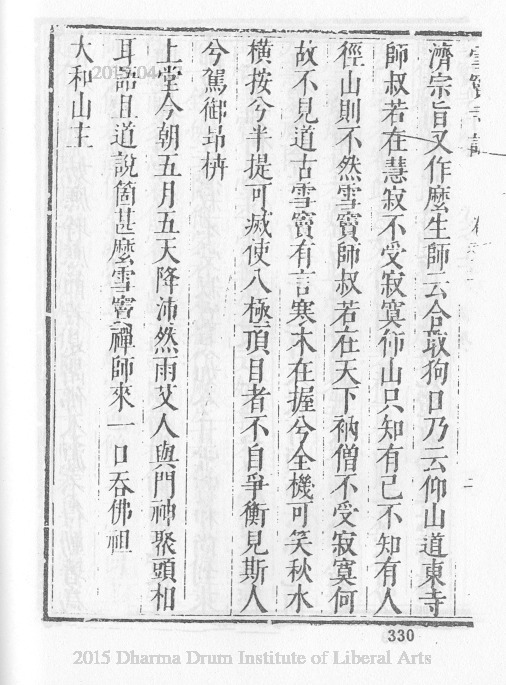 濟宗旨又作麼生師云合取狗口乃云仰山道東寺
師叔若在慧寂不受寂寞仰山只知有己不知有人
徑山則不然雪竇師叔若在天下衲僧不受寂寞何
故不見道古雪竇有言寒木在握兮全機可笑秋水
橫按兮半提可滅使八極頂目者不自爭衡見斯人
兮駕御昂枿
上堂今朝五月五天降沛然雨艾人與門神聚頭相
耳語且道說箇甚麼雪竇禪師來一口吞佛祖
大和山主
330
2015 Dharma Drum Institute of Liberal Arts